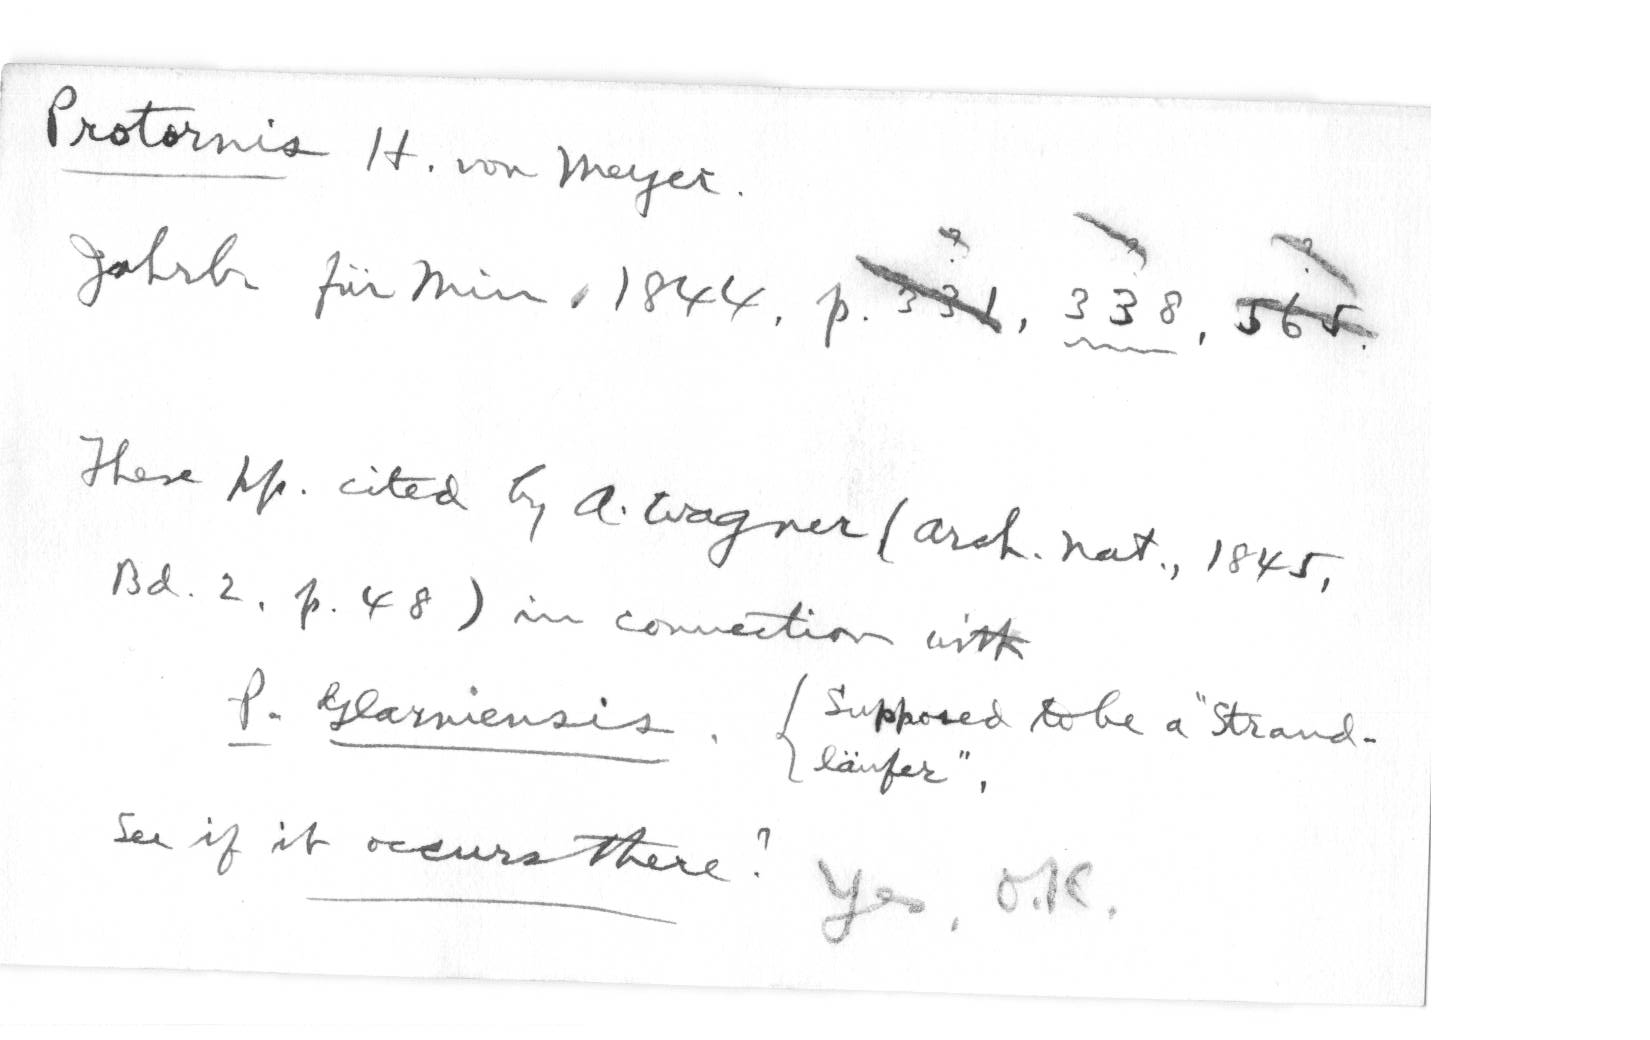 Protornis H. von Meyer.
Jahrb für Min. 1844, p. 331, 338, 565.
These pp. cited by A. Wagner (Arch. Nat., 1845,
Bd. 2, p. 48) in connection with
P. Glarniensis. {Supposed to be a "Strand-
läufer".
See if it occurs there? Yes, O.K.